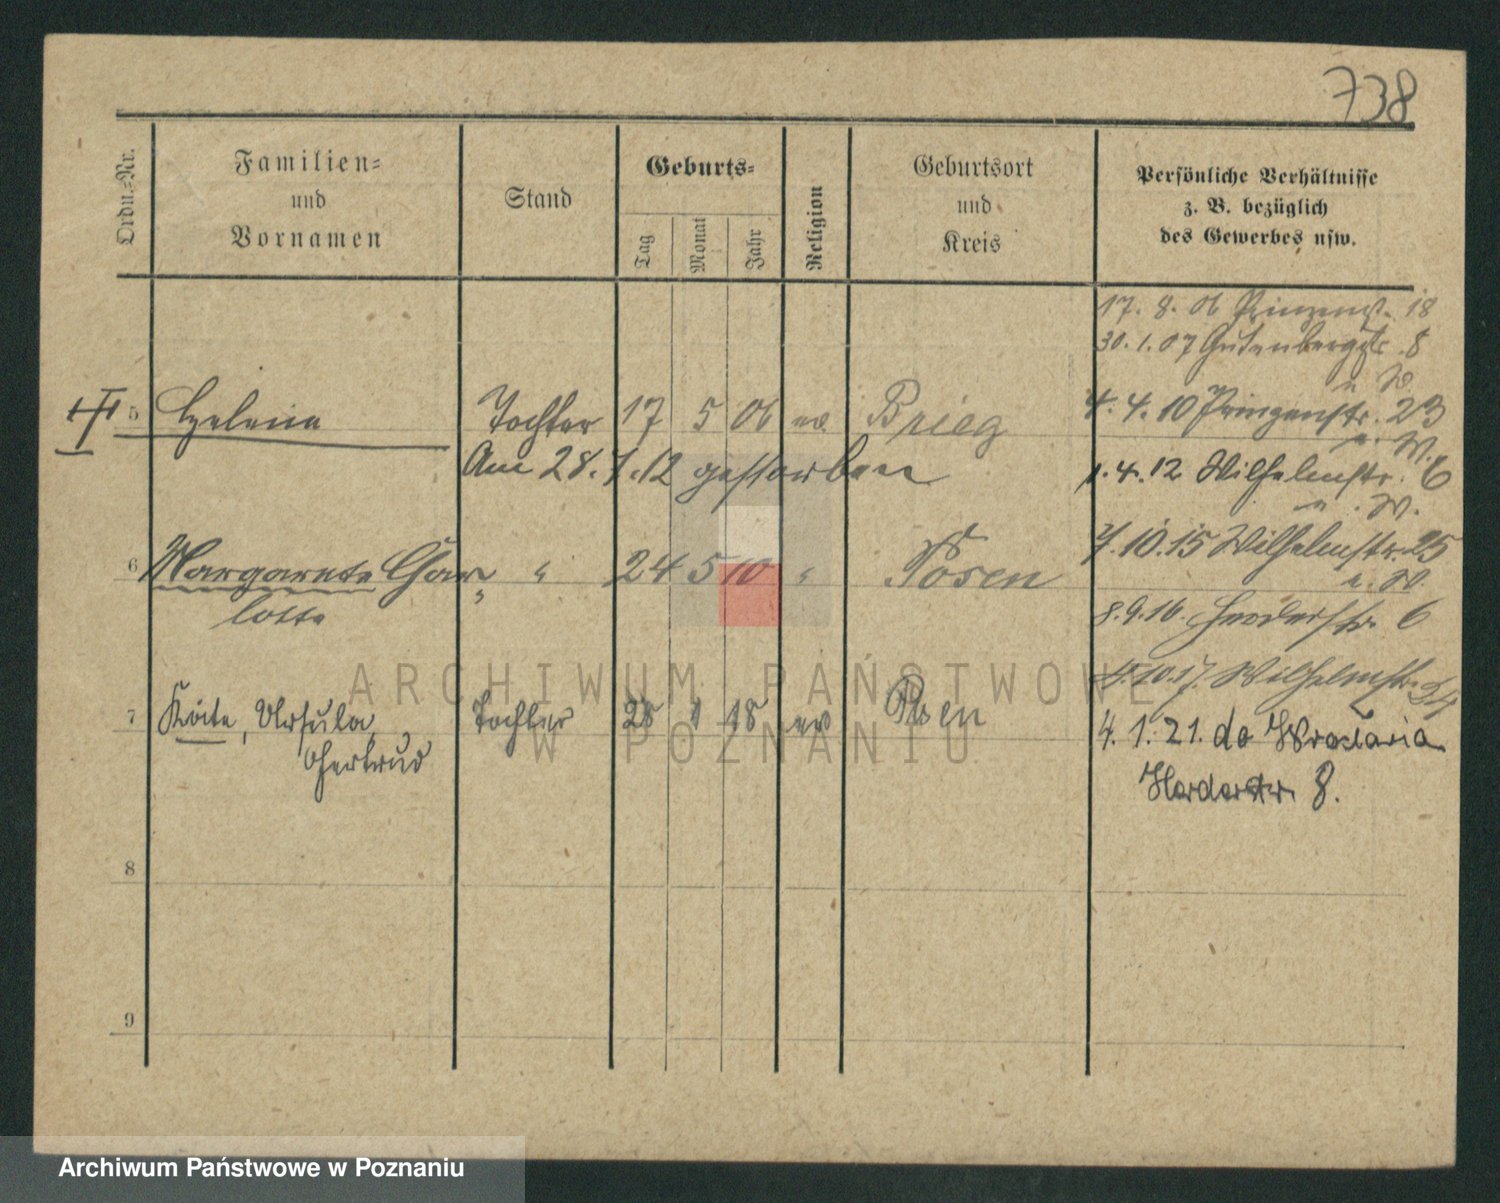 738
Ordn.=Nr.
Familien=
und
Vornamen
Stand
Geburts=
Tag
Monat
Jahr
Religion
Geburtsort
und
Kreis
Persönliche Verhältnisse
z. B. bezüglich
des Gewerbes usw.
17. 8. 06 Prinzenst. 18
30. 1. 07 Gutenbergstr. 8
u W.
4. 4. 10 Prinzenstr. 23
u. W.
5 Helene Tochter 17 5 06 ev Brieg
Am 28. 1. 12 gestorben
1. 4. 12 Wilhelmstr. 6
u. W.
10. 15 Wilhelmstr. 25
u. W
6 Margarete Char „ 24 5 10 „ Posen
lotte
8. 9. 16. Herderstr. 6
10. 17. Wilhelmstr.
7 Käte, Ursula, Tochter 28 1 18 ev Posen
Gertrud
4. 1. 21. do Wrocławia
Herderstr. 8.
8
9
ARCHIWUM PAŃSTWOWE
W POZNANIU
Archiwum Państwowe w Poznaniu